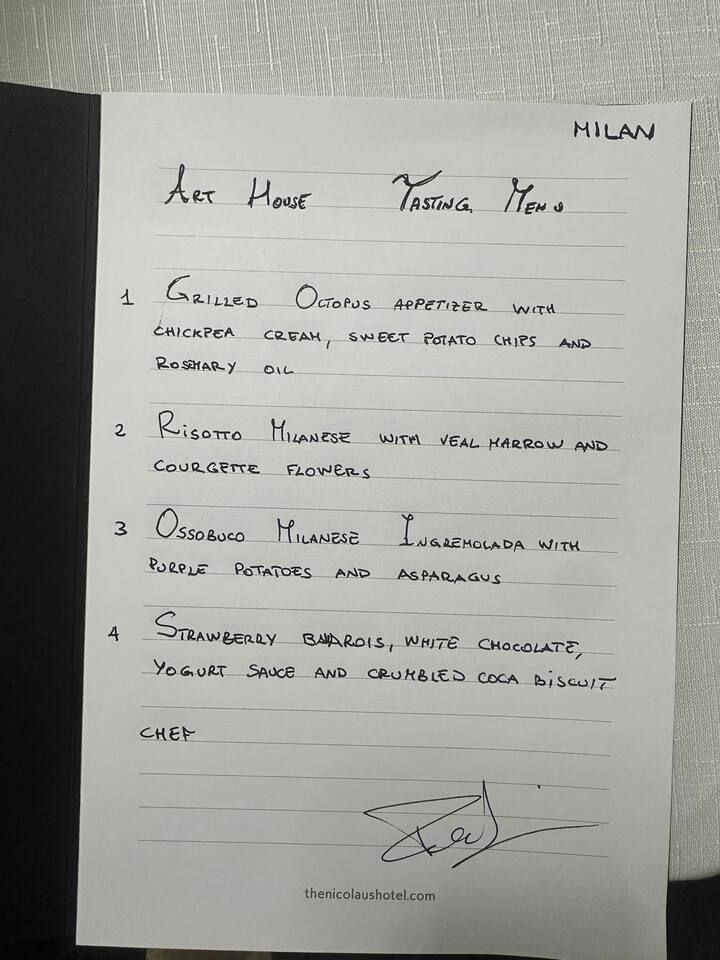 MILAN
ART HOUSE TASTING MENU
1 GRILLED OCTOPUS APPETIZER WITH
CHICKPEA CREAM, SWEET POTATO CHIPS AND
ROSEMARY OIL
2 RISOTTO MILANESE WITH VEAL MARROW AND
COURGETTE FLOWERS
3 OSSOBUCO MILANESE INGREMOLADA WITH
PURPLE POTATOES AND ASPARAGUS
4 STRAWBERRY BAVAROIS, WHITE CHOCOLATE,
YOGURT SAUCE AND CRUMBLED COCA BISCUIT
CHEF
thenicolaushotel.com